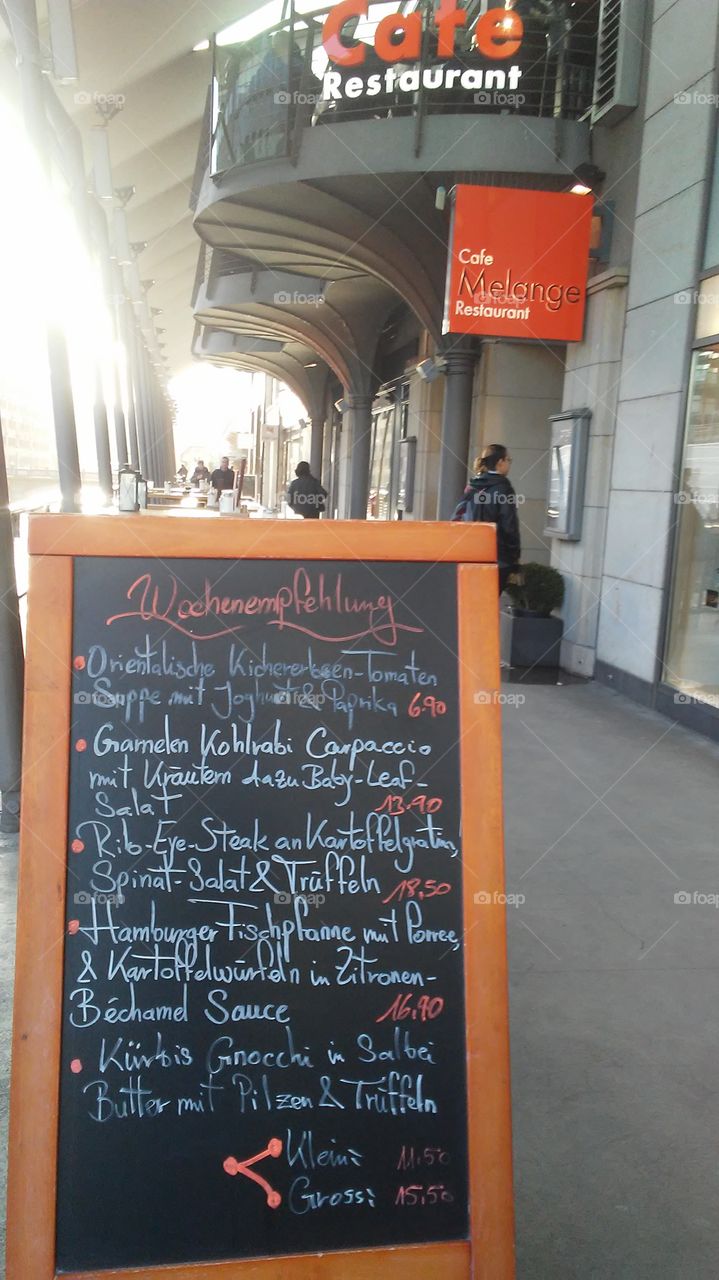 Cafe
Restaurant
Cafe
Melange
Restaurant
Wochenempfehlung
• Orientalische Kichererbsen-Tomaten
Suppe mit Joghurt & Paprika 6.90
• Garnelen Kohlrabi Carpaccio
mit Kräutern dazu Baby-Leaf-
Salat 13.90
• Rib-Eye-Steak an Kartoffelgratin,
Spinat-Salat & Trüffeln 18,50
• Hamburger Fischpfanne mit Porree,
& Kartoffelwürfeln in Zitronen-
Béchamel Sauce 16,90
• Kürbis Gnocchi in Salbei
Butter mit Pilzen & Trüffeln
Klein: 11.50
Gross: 15.50
foap